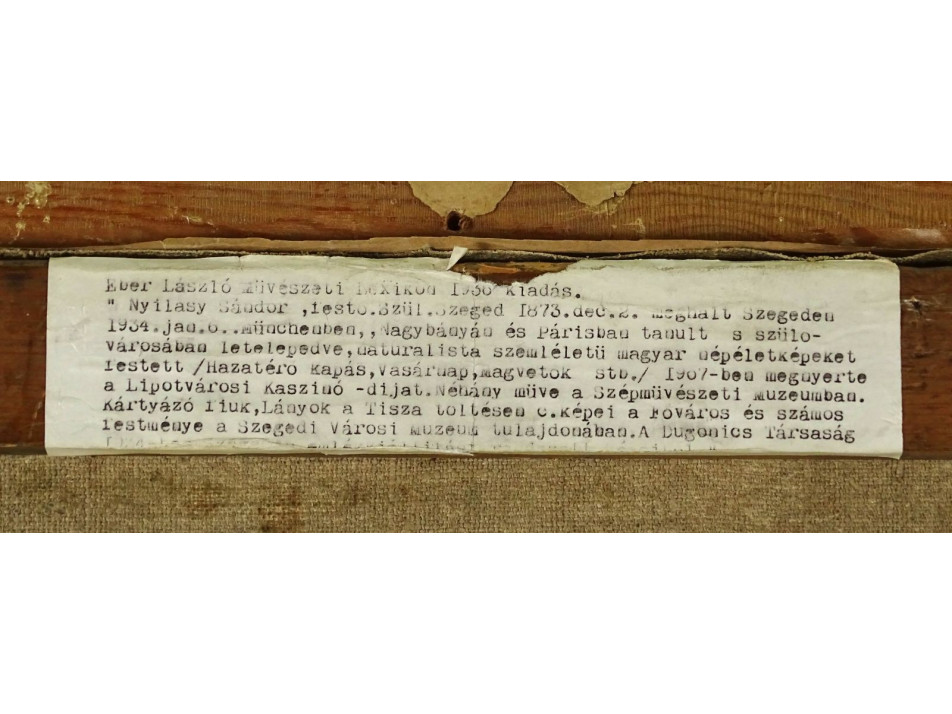 Éber László Művészeti Lexikon 1936 kiadás.
" Nyilasy Sándor ,festő.Szül.Szeged 1873.dec.2. meghalt Szegeden
1934.jan.6..Münchenben,,Nagybányán és Párisban tanult s szülő-
városában letelepedve,naturalista szemléletü magyar népéletképeket
festett /Hazatérő kapás,Vasárnap,Magvetők stb./ 1907-ben megnyerte
a Lipotvárosi Kaszinó -dijat.Néhány müve a Szépmüvészeti muzeumban.
Kártyázó fiuk,Lányok a Tisza töltésen c.képei a Főváros és számos
festménye a Szegedi Városi muzeum tulajdonában.A Dugonics Társaság